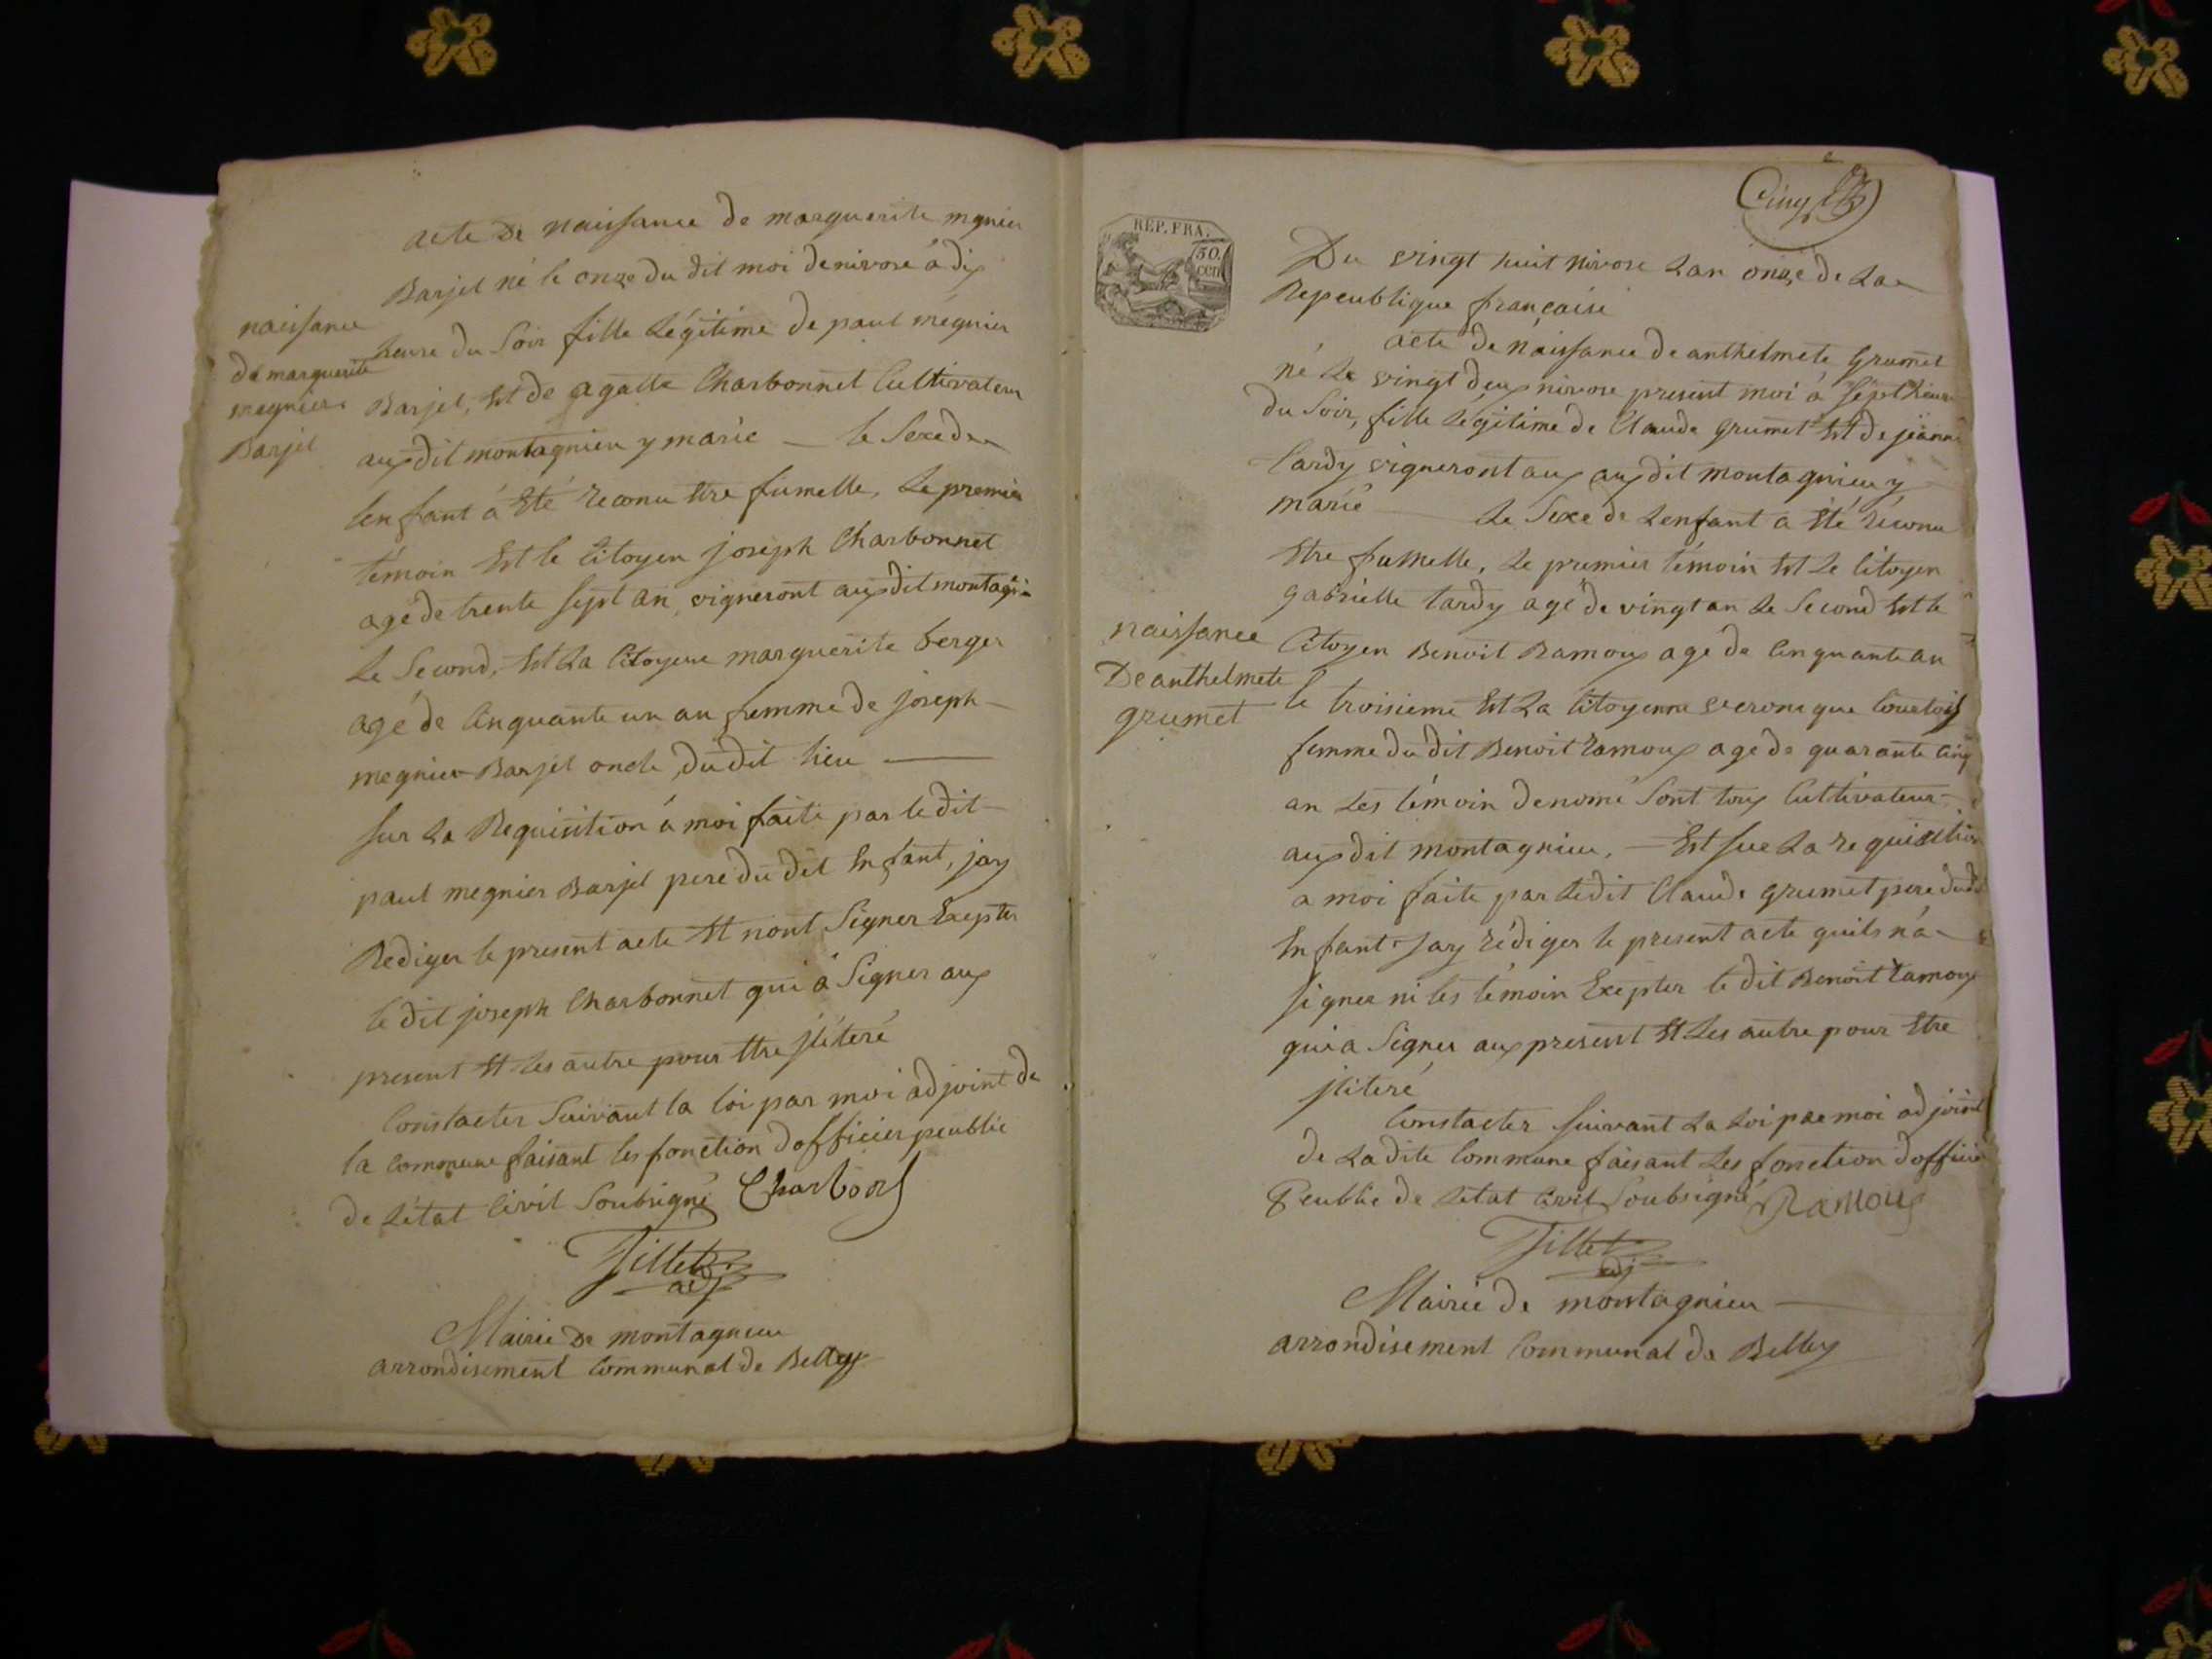 acte de naissance de marguerite mgnier
Barjel né le onze du dit moi de nivose à dix
heure du Soir fille Légitime de paul megnier
Barjel, Et de agatte Charbonnet Cultivateur
aux dit montagnieu y marié — le Sexe de
lenfant à Eté reconu Etre fumelle, Le premier
témoin Est le Citoyen joseph Charbonnet
agé de trente sept an, vigneront aux dit montagni
Le Second, Est La Citoyene marguerite berger
agé de Cinquante un an femme de joseph
megnier Barjel oncle, du dit lieu
sur La Requisition à moi faite par le dit
paul megnier Barjel pere du dit Enfant, jay
Rediger le present acte Et nont Signer Exepter
le dit joseph Charbonnet qui à Signer aux
present Et les autre pour Etre jliteré
Constacter Suivant la loi par moi adjoint de
la Commune faisant les fonction dofficier peublic
de Létat Civil Soubsigné Charbon
Tillet
adj
Mairie De montagnieu
arrondisement Communal de Belley
naissance
de marguerite
megnier
Barjel
Cinq
REP. FRA.
50.
cen
Du vingt huit nivose Lan onze de La
Repeublique française
acte de naissance de anthelmete Grumet
né Le vingt deux nivose present moi à sept heure
du Soir, fille Légitime de Claude grumet Et de jeanne
tardy vigneront aux aux dit montagnieu y
marié Le Sexe de Lenfant a Eté réconu
Etre fumelle, Le premier témoin Est Le Citoyen
gabrielle tardy agé de vingt an Le Second Est le
Citoyen Benoit Ramoux agé de Cinquante an
le troisieme Est La Citoyenne veronique
femme du dit Benoit Ramoux agé de quarante Cinq
an Les témoin denomé Sont tous Cultivateur
aux dit montagnieu, — Est sur La requisition
a moi faite par Ledit Claude grumet pere dudit
Enfant Jay rédiger le present acte quils na
signer ni les témoin Exepter le dit Benoit Ramoux
qui a Signer aux present Et Les autre pour Etre
jliteré
Constacter suivant La Loi par moi adjoint
de Ladite Commune faisant Les fonction dofficier
Peublic de Létat Civil Soubsigné Ramoux
Tillet
adj
Mairie de montagnieu
arrondisement Communal de Belley
naissance
De anthelmete
grumet